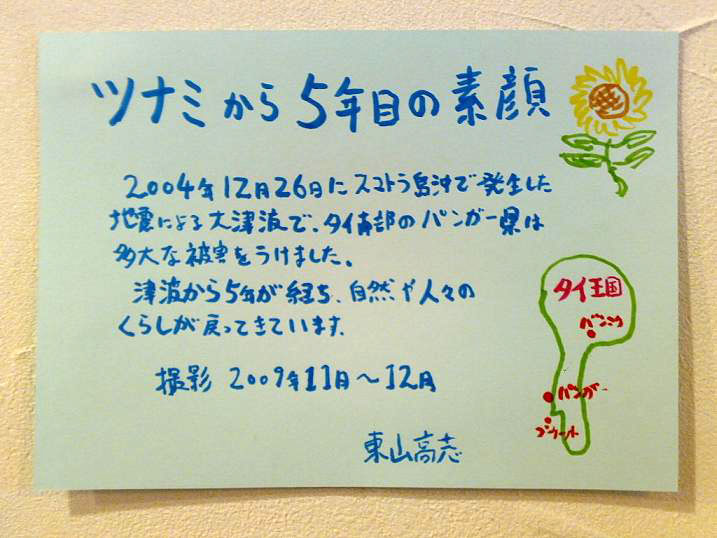 ツナミから5年目の素顔
2004年12月26日にスマトラ島沖で発生した
地震による大津波で、タイ南部のパンガー県は
多大な被害をうけました。
津波から5年が経ち、自然や人々の
くらしが戻ってきています。
撮影 2009年11月〜12月
東山高志
タイ王国
バンコク
パンガー
プーケット